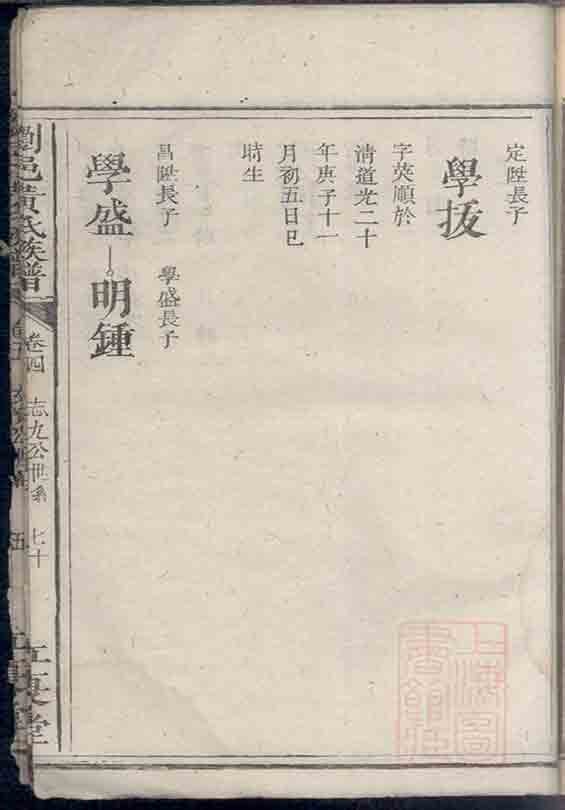 定陞長子
學拔
字英順於
淸道光二十
年庚子十一
月初五日巳
時生
昌陞長子 學盛長子
學盛 明鍾
瀏邑黃氏族譜
卷四 志九公世系 七十
上海圖書館藏